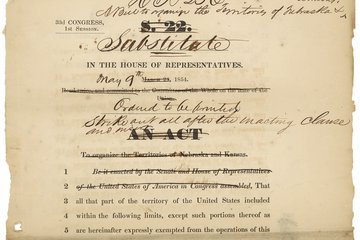 A Bill to organize the Territories of Nebraska &
33d CONGRESS,
1st SESSION.
S. 22.
Substitute
IN THE HOUSE OF REPRESENTATIVES.
May 9th March 23, 1854.
Ordered to be printed
Strike out all after the enacting clause
and
AN ACT
To organize the Territories of Nebraska and Kansas.
1 Be it enacted by the Senate and House of Representatives
2 of the United States of America in Congress assembled, That
3 all that part of the territory of the United States included
4 within the following limits, except such portions thereof as
5 are hereinafter expressly exempted from the operations of this